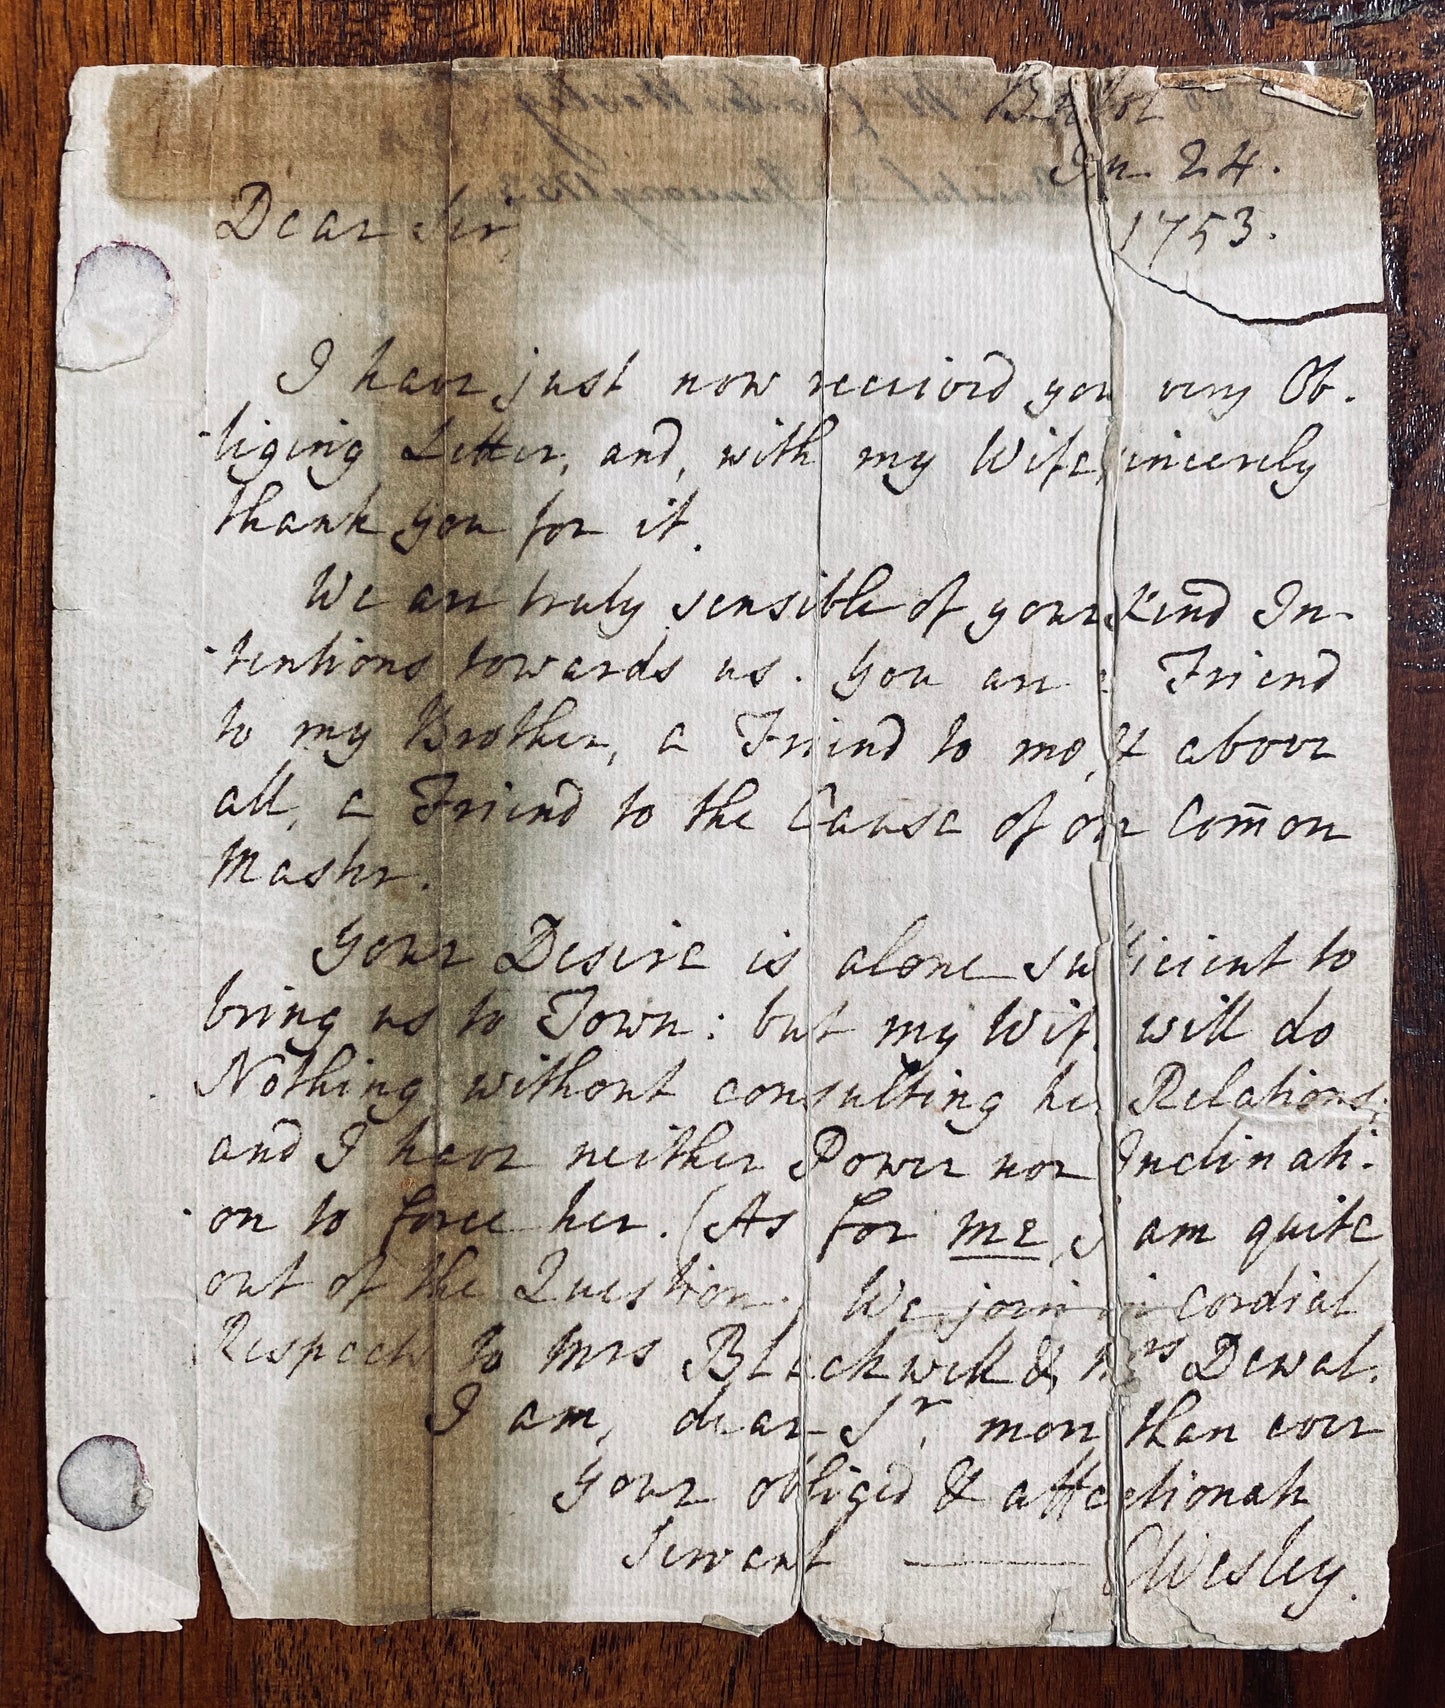 Bristol
Jan 24.
1753.
Dear Sir
I have just now received your very Ob-
-liging Letter, and, with my Wife, sincerely
thank you for it.
We are truly sensible of your kind In-
-tentions towards us. You are a Friend
to my Brother, a Friend to me, & above
all, a Friend to the Cause of our Com̄on
Master.
Your Desire is alone sufficient to
bring us to Town: but my Wife will do
Nothing without consulting her Relations;
and I have neither Power nor Inclinati-
on to force her. (As for me, I am quite
out of the Question. We join in cordial
Respects to Mrs Blackwell & Mrs Dewal.
I am, dear Sr, more than ever
Your obliged & affectionate
Servant — CWesley.